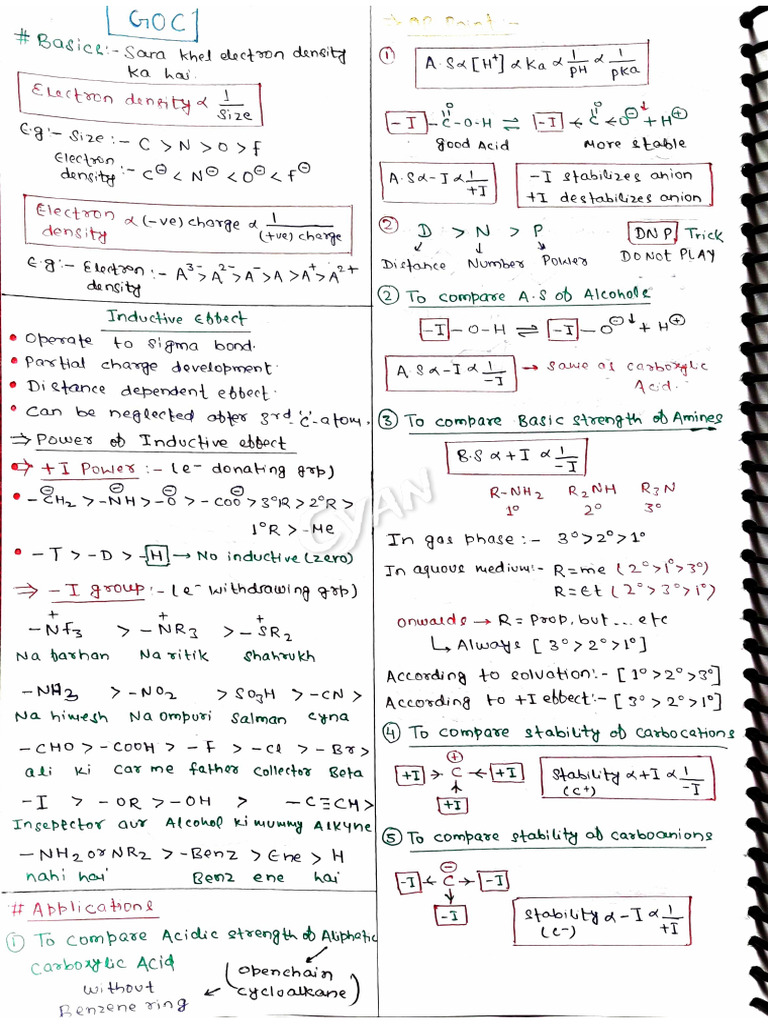 [GOC]
# Basics:- Sara khel electron density
ka hai.
Electron density ∝ 1/Size
E.g:- Size :- C > N > O > f
Electron density :- C⊖ < N⊖ < O⊖ < f⊖
Electron density ∝ (-ve) charge ∝ 1/(+ve) charge
E.g:- Electron density :- A³⁻ > A²⁻ > A⁻ > A > A⁺ > A²⁺
Inductive effect
• Operate to sigma bond.
• Partial charge development.
• Distance dependent effect.
• Can be neglected after 3rd 'C'-atom.
⇒ Power of Inductive effect
⇒ +I Power :- (e⁻ donating grp)
• -C⊖H₂ > -N⊖H > -O⊖ > -COO⊖ > 3°R > 2°R >
1°R > -Me
• -T > -D > -[H] → No inductive (zero)
⇒ -I group :- (e⁻ withdrawing grp)
-N⁺f₃ > -N⁺R₃ > -S⁺R₂
Na farhan Na ritik Shahrukh
-NH₃ > -NO₂ > SO₃H > -CN >
Na himesh Na ompuri Salman Cyna
-CHO > -COOH > -F > -Cl > -Br >
ali ki car me father collector Beta
-I > -OR > -OH > -C≡CH >
Insepector aur Alcohol ki mummy Alkyne
-NH₂ or NR₂ > -Benz > Ene > H
nahi hai Benz ene hai
# Applications
① To compare Acidic strength of Aliphatic
Carboxylic Acid
without Benzene ring
(openchain
cycloalkane)
Point:-
① A.S ∝ [H⁺] ∝ Ka ∝ 1/pH ∝ 1/pKa
[-I]-C(=O)-O-H ⇌ [-I]←C(=O)←O⊖↓ + H⊕
good Acid More stable
A.S ∝ -I ∝ 1/+I
-I stabilizes anion
+I destabilizes anion
② D > N > P [DNP] Trick
Distance Number Power DO NOT PLAY
② To compare A.S of Alcohols
[-I]-O-H ⇌ [-I]-O⊖↓ + H⊕
A.S ∝ -I ∝ 1/-I → same as carboxylic
Acid.
③ To compare Basic strength of Amines
B.S ∝ +I ∝ 1/-I
R-NH₂ R₂NH R₃N
1° 2° 3°
In gas phase :- 3° > 2° > 1°
In aquous medium:- R = me (2° > 1° > 3°)
R = Et (2° > 3° > 1°)
onwards → R = Prop, but ... etc
↳ Always [3° > 2° > 1°]
According to solvation:- [1° > 2° > 3°]
According to +I effect:- [3° > 2° > 1°]
④ To compare stability of carbocations
[+I] → C⊕ ← [+I]
[+I]
Stability (C⁺) ∝ +I ∝ 1/-I
⑤ To compare stability of carboanions
[-I] ← C⊖ → [-I]
[-I]
Stability (C⁻) ∝ -I ∝ 1/+I
CYAN